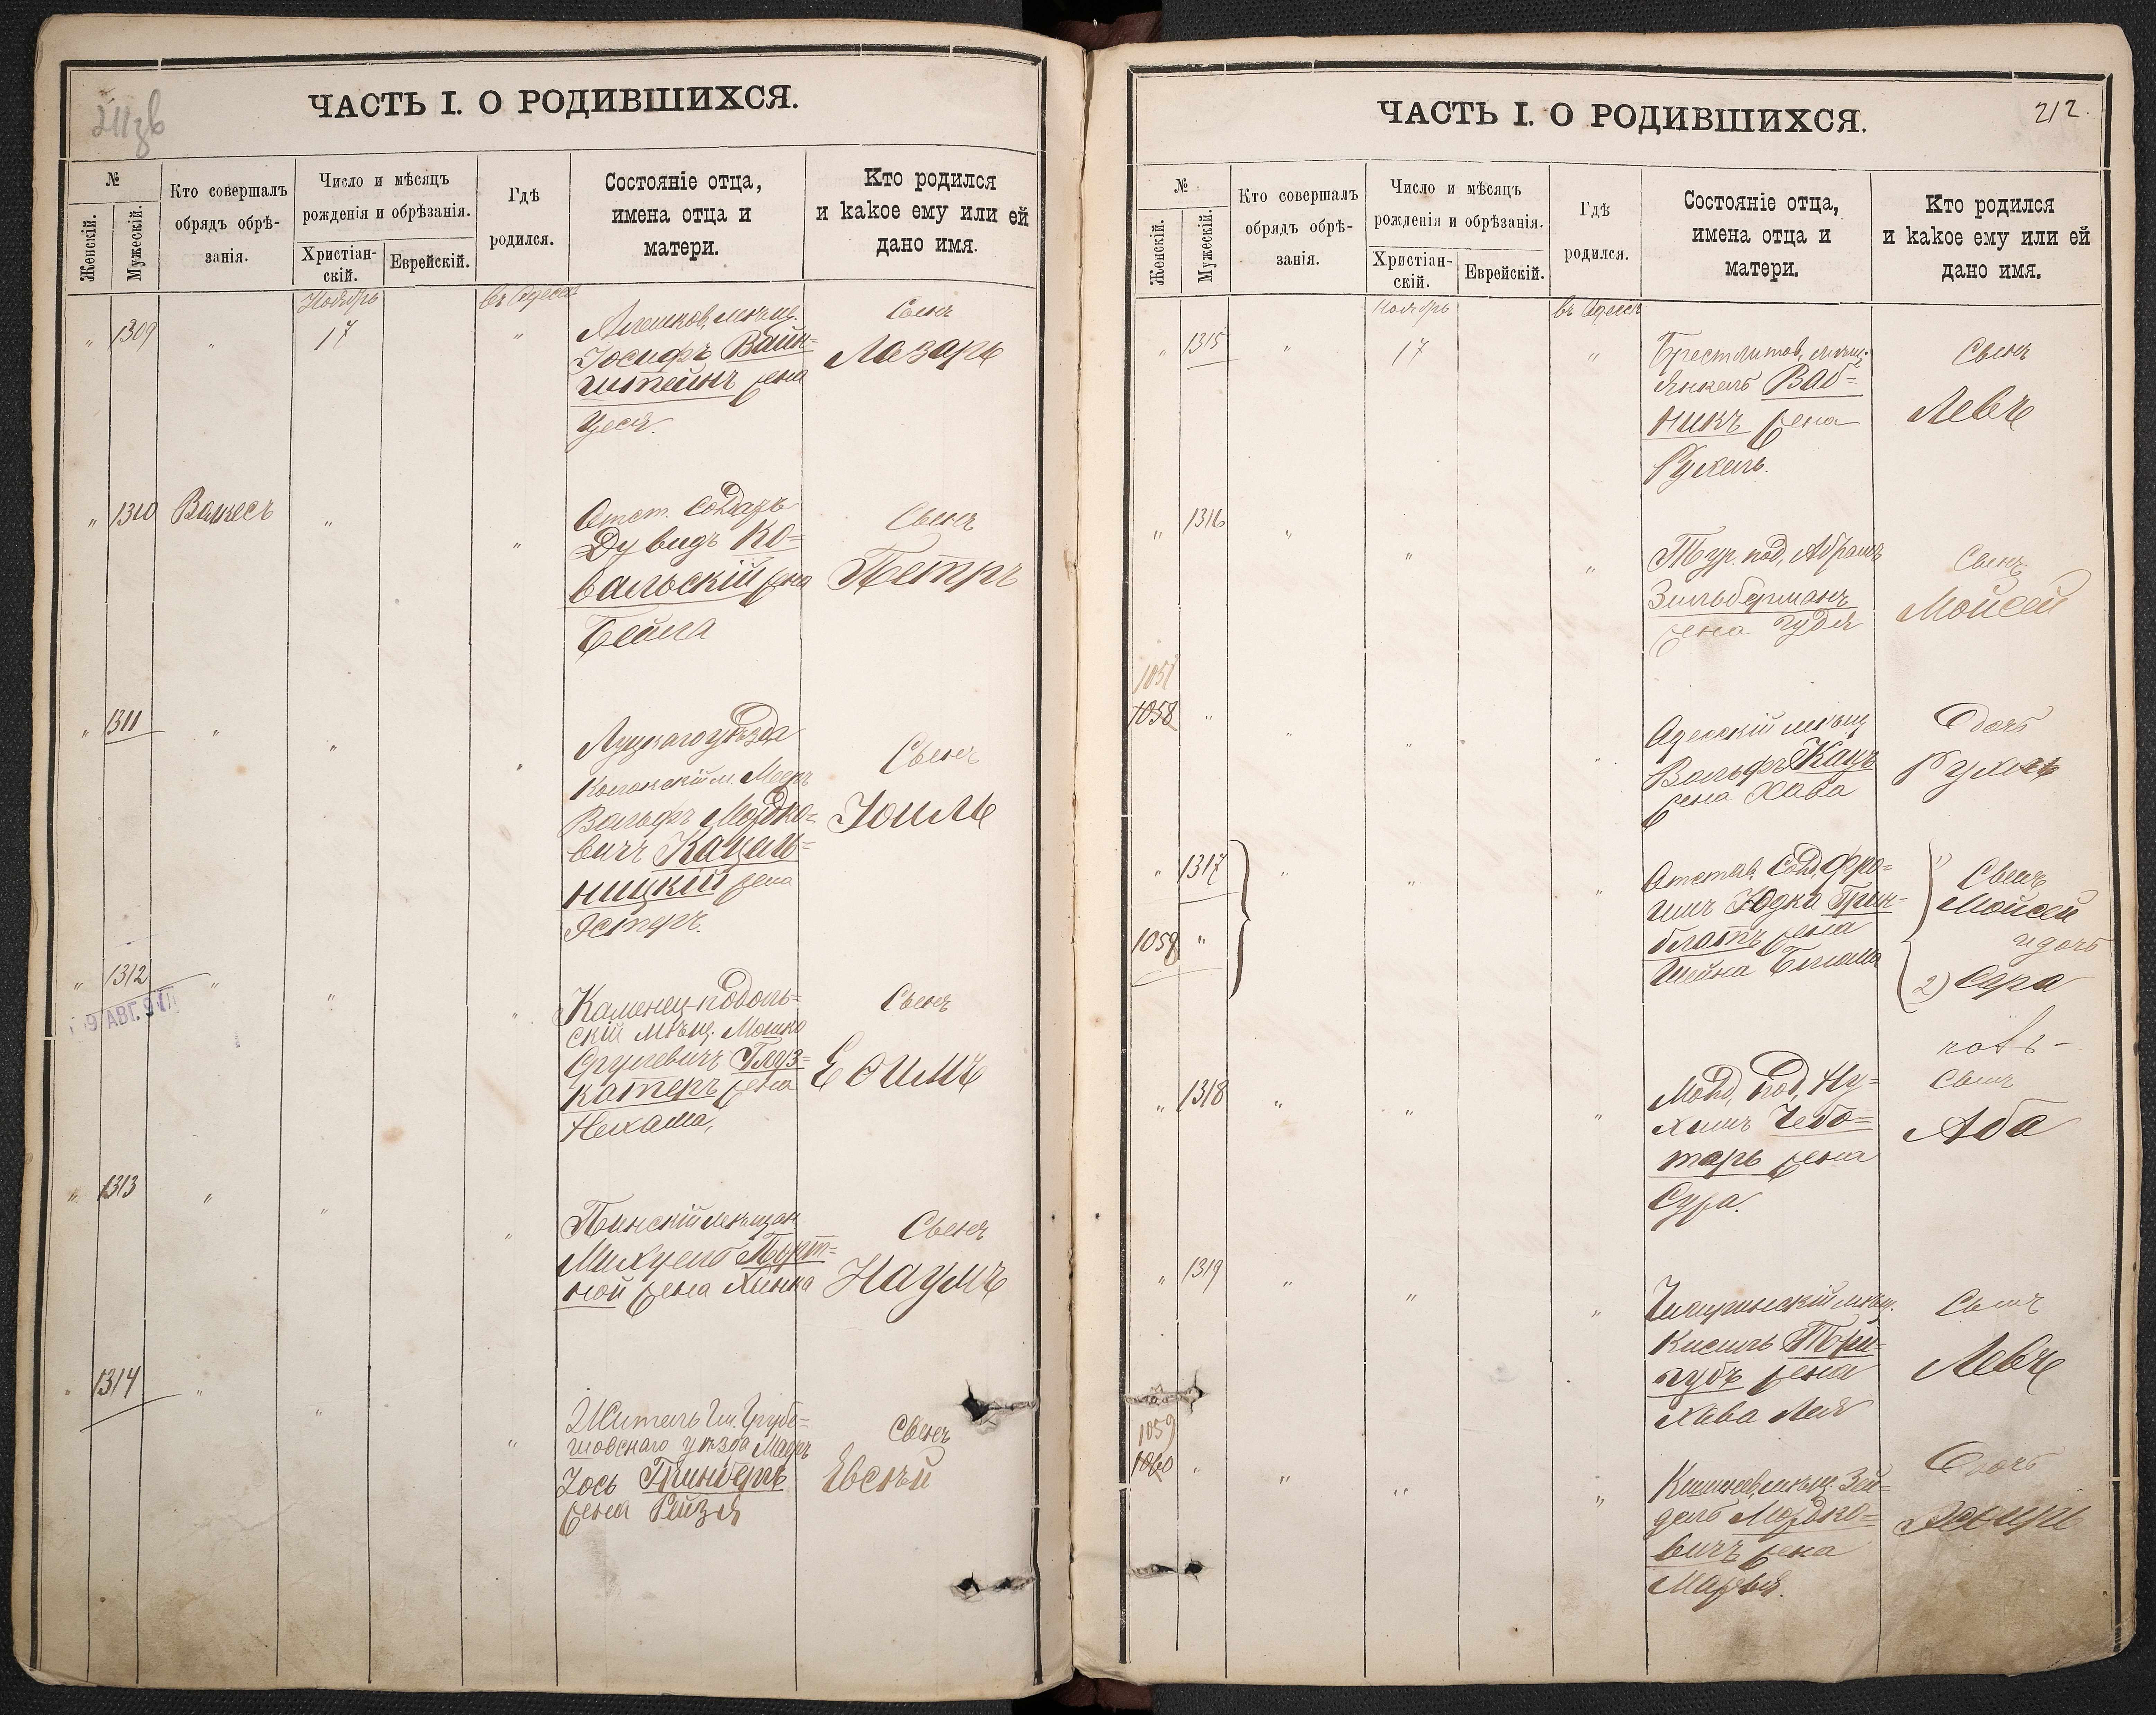 211зв
ЧАСТЬ I. О РОДИВШИХСЯ.
№
Женскій.
Мужескій.
Кто совершалъ
обрядъ обрѣ-
занія.
Число и мѣсяцъ
рожденія и обрѣзанія.
Христіан-
скій.
Еврейскій.
Гдѣ
родился.
Состояніе отца,
имена отца и
матери.
Кто родился
и какое ему или ей
дано имя.
Ноябрь
въ Одессѣ
" 1309 " 17 "
мѣщ.
Іосифъ Вайн=
штейнъ жена
Цеся.
Сынъ
Лазарь
" 1310 Вижесъ " "
Отст. солдатъ
Дувидъ Ко=
вальскій жена
Бейла
Сынъ
Петръ
" 1311 " " "
Луцкаго уѣзда
Вольфъ Мордко=
вичъ Кацан=
ницкій жена
Эстеръ.
Сынъ
Іоиль
" 1312 " " "
9 АВГ.
Каменец-подоль=
скій мѣщ. Мошко
Сруневичъ Глуз=
катеръ жена
Нехама,
Сынъ
Ефимъ
" 1313 " " "
Пинскій мѣщан.
Михуель Порт=
ной жена Хинка
Сынъ
Наумъ
" 1314 " " "
Житель Грубе=
шовскаго уѣзда
Іось Гринбергъ
жена Рейзя
Сынъ
Евсѣй
ЧАСТЬ I. О РОДИВШИХСЯ.
212.
№
Женскій.
Мужескій.
Кто совершалъ
обрядъ обрѣ-
занія.
Число и мѣсяцъ
рожденія и обрѣзанія.
Христіан-
скій.
Еврейскій.
Гдѣ
родился.
Состояніе отца,
имена отца и
матери.
Кто родился
и какое ему или ей
дано имя.
Ноябрь
въ Одессѣ
" 1315 " 17 "
Брестлитов. мѣщ.
Янкель Ваб=
никъ жена
Рухель.
Сынъ
Левъ
" 1316 " " "
Тур. под. Абрамъ
Зильберманъ
жена Гудя
Сынъ
Моисей
1057
1058 " " " "
Одесскій мѣщ.
Вольфъ Кацъ
жена Хава
Дочь
Рухль
" 1317 " " "
1059 "
Отстав. солд. Фро=
имъ Юдка Грин=
блатъ жена
Шейна Блюма
1) Сынъ
Моисей
и дочь
2) Сура
" 1318 " " "
Молд. под. Ну=
химъ Чебо=
тарь жена
Сура.
Сынъ
Аба
" 1319 " " "
Чигиринскій мѣщ.
Кисиль Три=
губъ жена
Хава Лея
Сынъ
Левъ
1059
1060 " " " "
Кишинев. мѣщ. Зей=
дель Мордко=
вичъ жена
Марья.
Дочь
Эсфирь